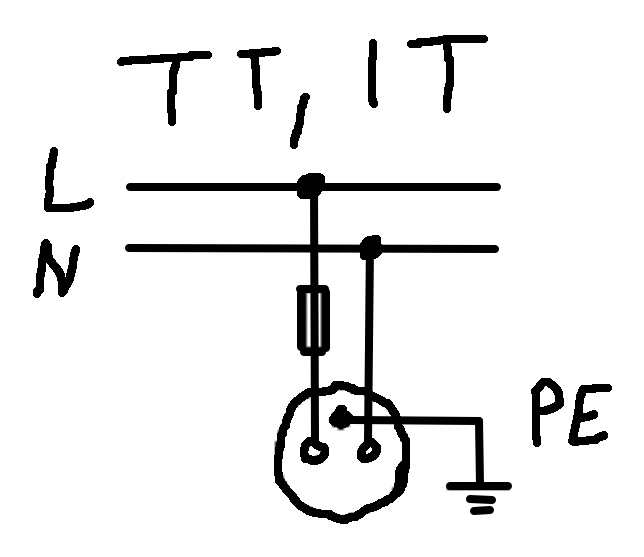 TT, IT
L
N
PE